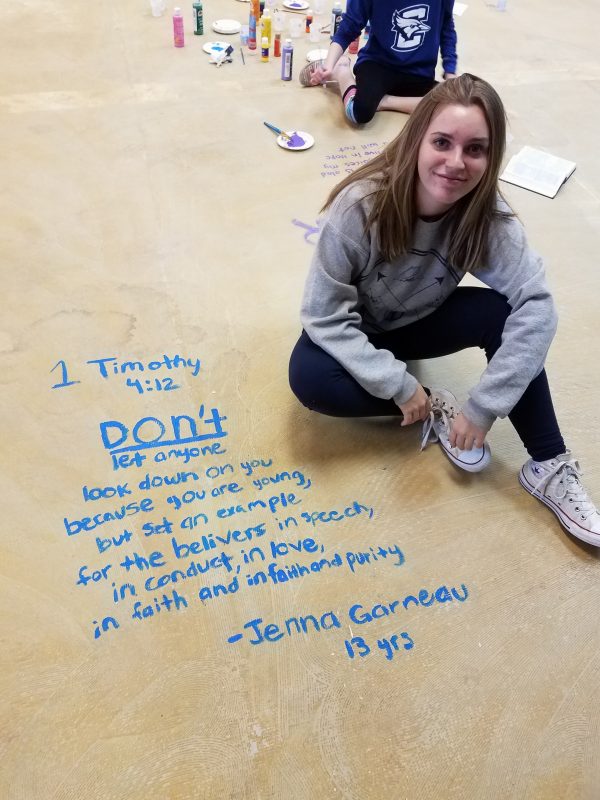 1 Timothy
4:12
DON't
let anyone
look down on you
because you are young,
but set an example
for the belivers in speech,
in conduct, in love,
in faith and in faith and purity
-Jenna Garneau
13 yrs